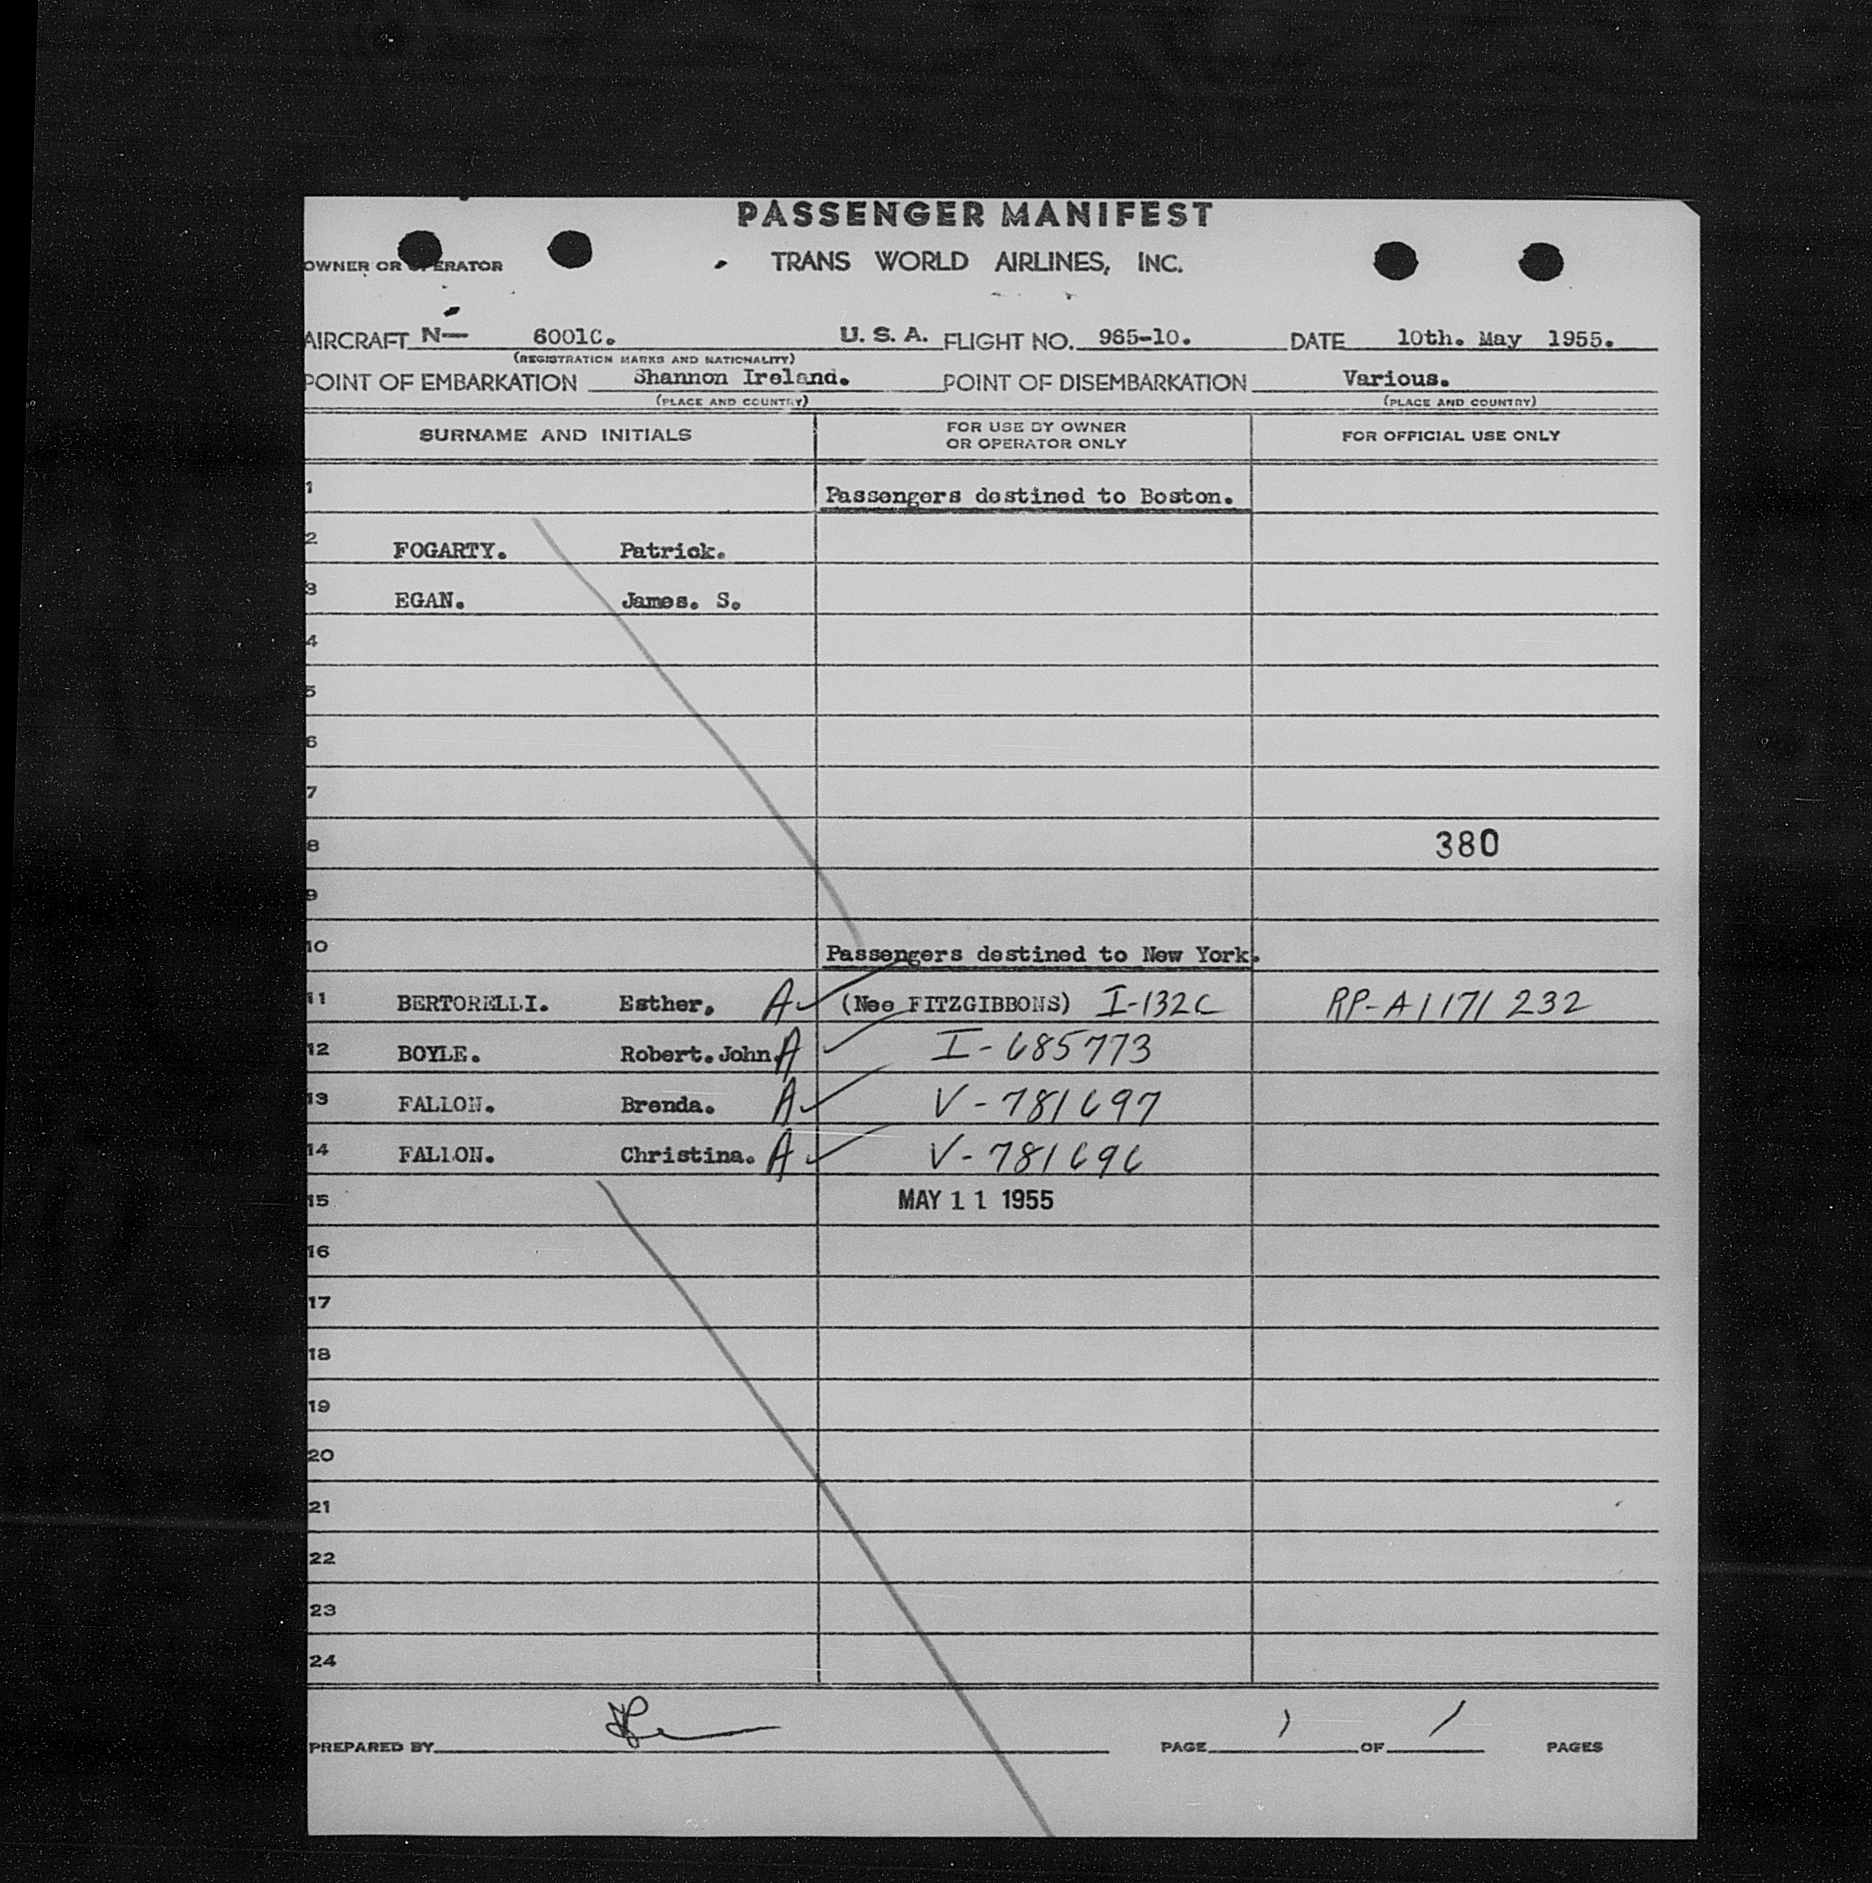 PASSENGER MANIFEST
OWNER OR OPERATOR TRANS WORLD AIRLINES, INC.
AIRCRAFT N— 6001C. U. S. A. FLIGHT NO. 965-10. DATE 10th. May 1955.
(REGISTRATION MARKS AND NATIONALITY)
POINT OF EMBARKATION Shannon Ireland. POINT OF DISEMBARKATION Various.
(PLACE AND COUNTRY) (PLACE AND COUNTRY)
SURNAME AND INITIALS FOR USE BY OWNER OR OPERATOR ONLY FOR OFFICIAL USE ONLY
1 Passengers destined to Boston.
2 FOGARTY. Patrick.
3 EGAN. James. S.
4
5
6
7
8 380
9
10 Passengers destined to New York.
11 BERTORELLI. Esther. A ✓ (Nee FITZGIBBONS) I-132C RP-A1171232
12 BOYLE. Robert. John. A ✓ I-685773
13 FALLON. Brenda. A ✓ V-781697
14 FALLON. Christina. A ✓ V-781696
15 MAY 11 1955
16
17
18
19
20
21
22
23
24
PREPARED BY PAGE 1 OF 1 PAGES